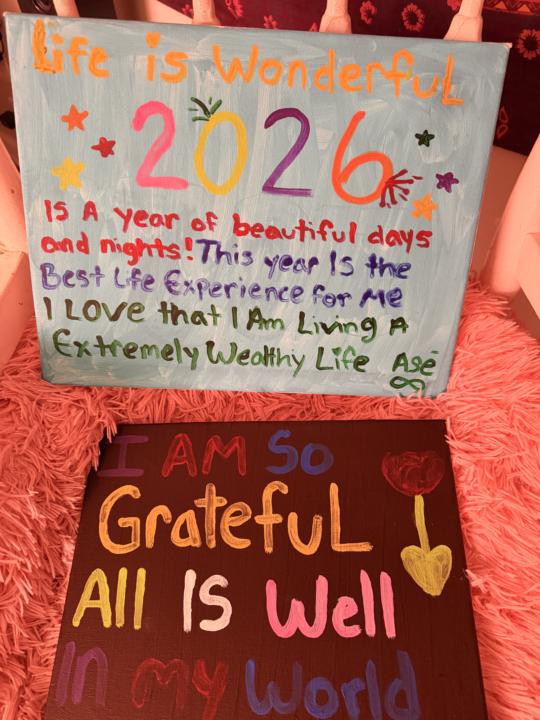 Life is WonderfuL
2026
IS A year of beautiful days
and nights! This year Is the
Best Life Experience for Me
I LOVE that I Am Living A
Extremely Wealthy Life Asé
I AM So
GratefuL
All IS Well
In my World